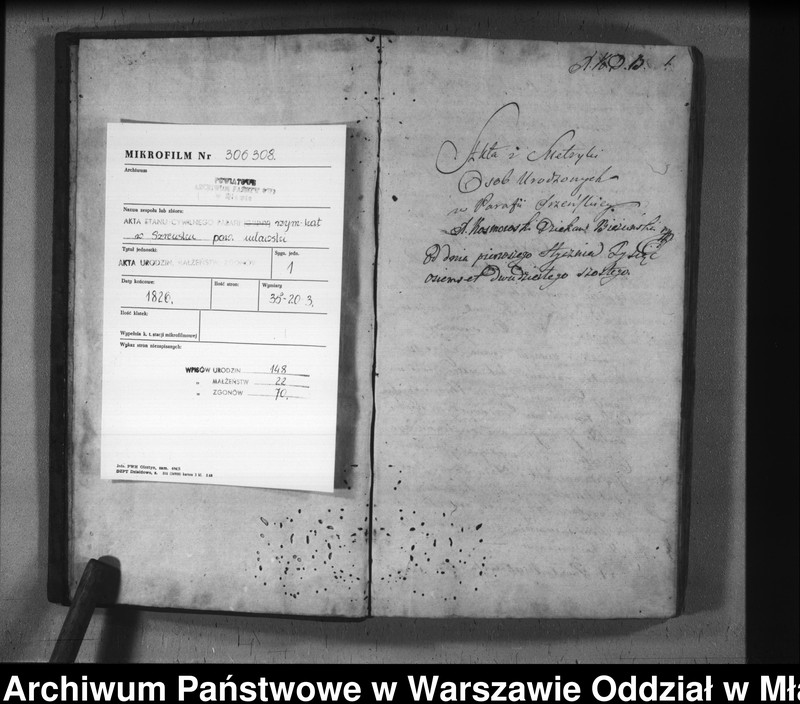 MIKROFILM Nr 306308.
Archiwum
POWIATOWE
ARCHIWUM PAŃSTWOWE
Nazwa zespołu lub zbioru:
AKTA STANU CYWILNEGO PARAFII wym-kat
w Szreńsku pow. mławski
Tytuł jednostki:
AKTA URODZIN, MAŁŻEŃSTW
Sygn. jedn.
1
Daty końcowe:
1826.
Ilość stron:
Wymiary
35-20 3.
Ilość klatek:
Wypełnia k. t. stacji mikrofilmowej
Wykaz stron niezapisanych:
WPISÓW URODZIN 148
„ MAŁŻEŃSTW 22
„ ZGONÓW 70.
A.W.D.B. 1.
Akta i Metryki
Osob Urodzonych
w Parafii
A. Kosmowski Dziekan Bieżuński
Od dnia pierwszego Stycznia Tysiąc
osiemset Dwudziestego szóstego
Archiwum Państwowe w Warszawie Oddział w Mła